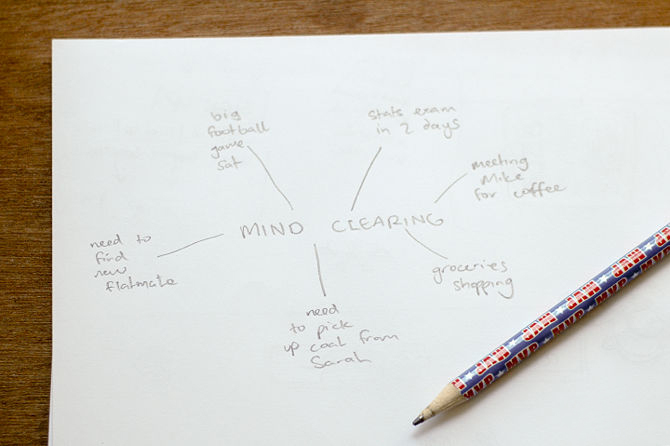 big
football
game
sat
stats exam
in 2 days
meeting
Mike
for coffee
MIND CLEARING
need to
find
new
flatmate
groceries
shopping
need
to pick
up coat from
Sarah
JAM JAM JAM
MVP MVP MVP